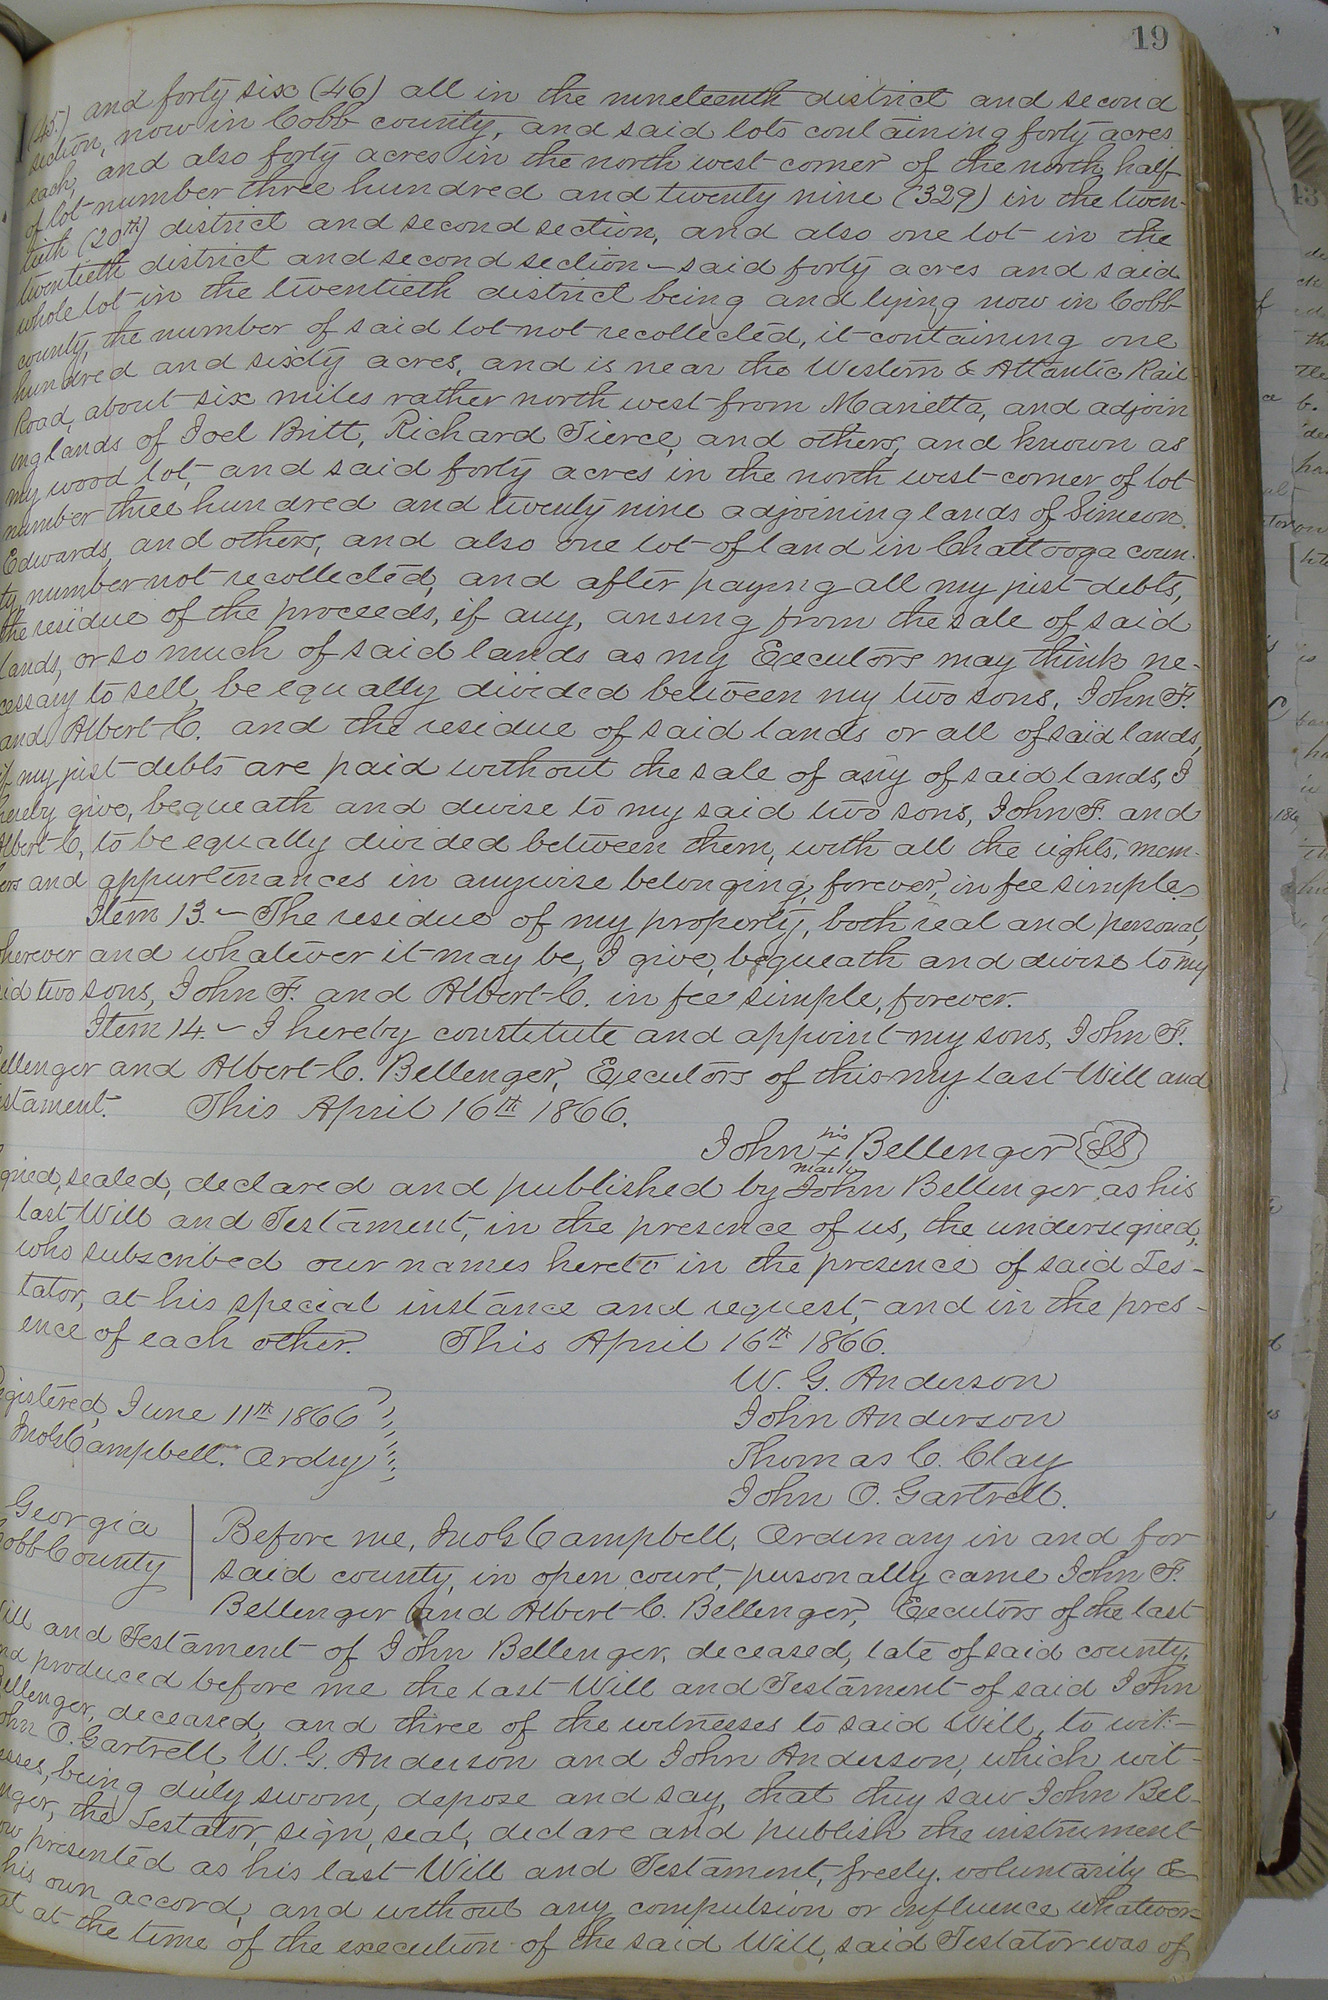 19
(45) and forty six (46) all in the nineteenth district and second
section, now in Cobb county, and said lots containing forty acres
each, and also forty acres in the north west corner of the north half
of lot number three hundred and twenty nine (329) in the twen-
tieth (20th) district and second section, and also one lot in the
twentieth district and second section – said forty acres and said
whole lot in the twentieth district being and lying now in Cobb
county, the number of said lot not recollected, it containing one
hundred and sixty acres, and is near the Western & Atlantic Rail
Road, about six miles rather north west from Marietta, and adjoin
ing lands of Joel Britt, Richard Pierce, and others, and known as
my wood lot, and said forty acres in the north west corner of lot
number three hundred and twenty nine adjoining lands of Simeon
Edwards, and others, and also one lot of land in Chattooga coun-
ty, number not recollected, and after paying all my just debts,
the residue of the proceeds, if any, arising from the sale of said
lands, or so much of said lands as my Executors may think ne-
cessary to sell, be equally divided between my two sons, John F.
and Albert C. and the residue of said lands or all of said lands,
if my just debts are paid without the sale of any of said lands, I
hereby give, bequeath and devise to my said two sons, John F. and
Albert C, to be equally divided between them, with all the rights, mem-
bers and appurtinances in anywise belonging, forever, in fee simple.
Item 13. – The residue of my property, both real and personal,
wherever and whatever it may be, I give, bequeath and devise to my
said two sons, John F. and Albert C. in fee simple, forever.
Item 14. – I hereby constitute and appoint my sons, John F.
Bellenger and Albert C. Bellenger, Executors of this my last Will and
Testament. This April 16th 1866.
John his X mark Bellenger LS
Signed, sealed, declared and published by John Bellenger as his
last Will and Testament, in the presence of us, the undersigned,
who subscribed our names hereto in the presence of said Tes-
tator, at his special instance and request, and in the pres-
ence of each other. This April 16th 1866.
W. G. Anderson
John Anderson
Thomas C. Clay
John O. Gartrell.
Registered, June 11th 1866
Jno G Campbell. Ordry
Georgia
Cobb County
Before me, Jno G Campbell, Ordinary in and for
said county, in open court, personally came John F.
Bellenger and Albert C. Bellenger, Executors of the last
Will and Testament of John Bellenger, deceased, late of said county,
and produced before me the last Will and Testament of said John
Bellenger, deceased, and three of the witnesses to said Will, to wit:–
John O. Gartrell, W. G. Anderson and John Anderson, which wit-
nesses, being duly sworn, depose and say, that they saw John Bel-
lenger, the Testator, sign, seal, declare and publish the instrument
now presented as his last Will and Testament, freely, voluntarily &
his own accord, and without any compulsion or influence whatever
that at the time of the execution of the said Will, said Testator was of